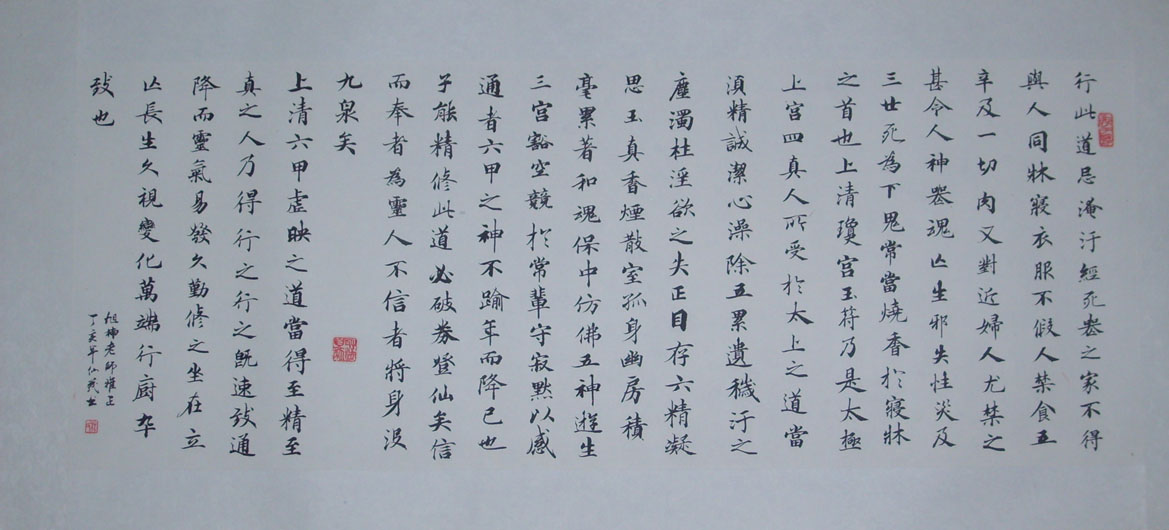 行此道忌淹汙經死喪之家不得
與人同牀寢衣服不假人禁食五
辛及一切肉又對近婦人尤禁之
甚令人神喪魂亡生邪失性災及
三世死為下鬼常當燒香於寢牀
之首也上清瓊宮玉符乃是太極
上宮四真人所受於太上之道當
湏精誠潔心澡除五累遺穢汙之
塵濁杜淫欲之失正目存六精凝
思玉真香煙散室孤身幽房積
毫累著和魂保中仿佛五神遊生
三宮豁空競於常輩守寂默以感
通者六甲之神不踰年而降已也
子能精修此道必破券登仙矣信
而奉者為靈人不信者將身沒
九泉矣
上清六甲虛映之道當得至精至
真之人乃得行之行之既速致通
降而靈氣易發久勤修之坐在立
亡長生久視變化萬端行廚卒
致也
老師雅正
丁亥年仙茂書